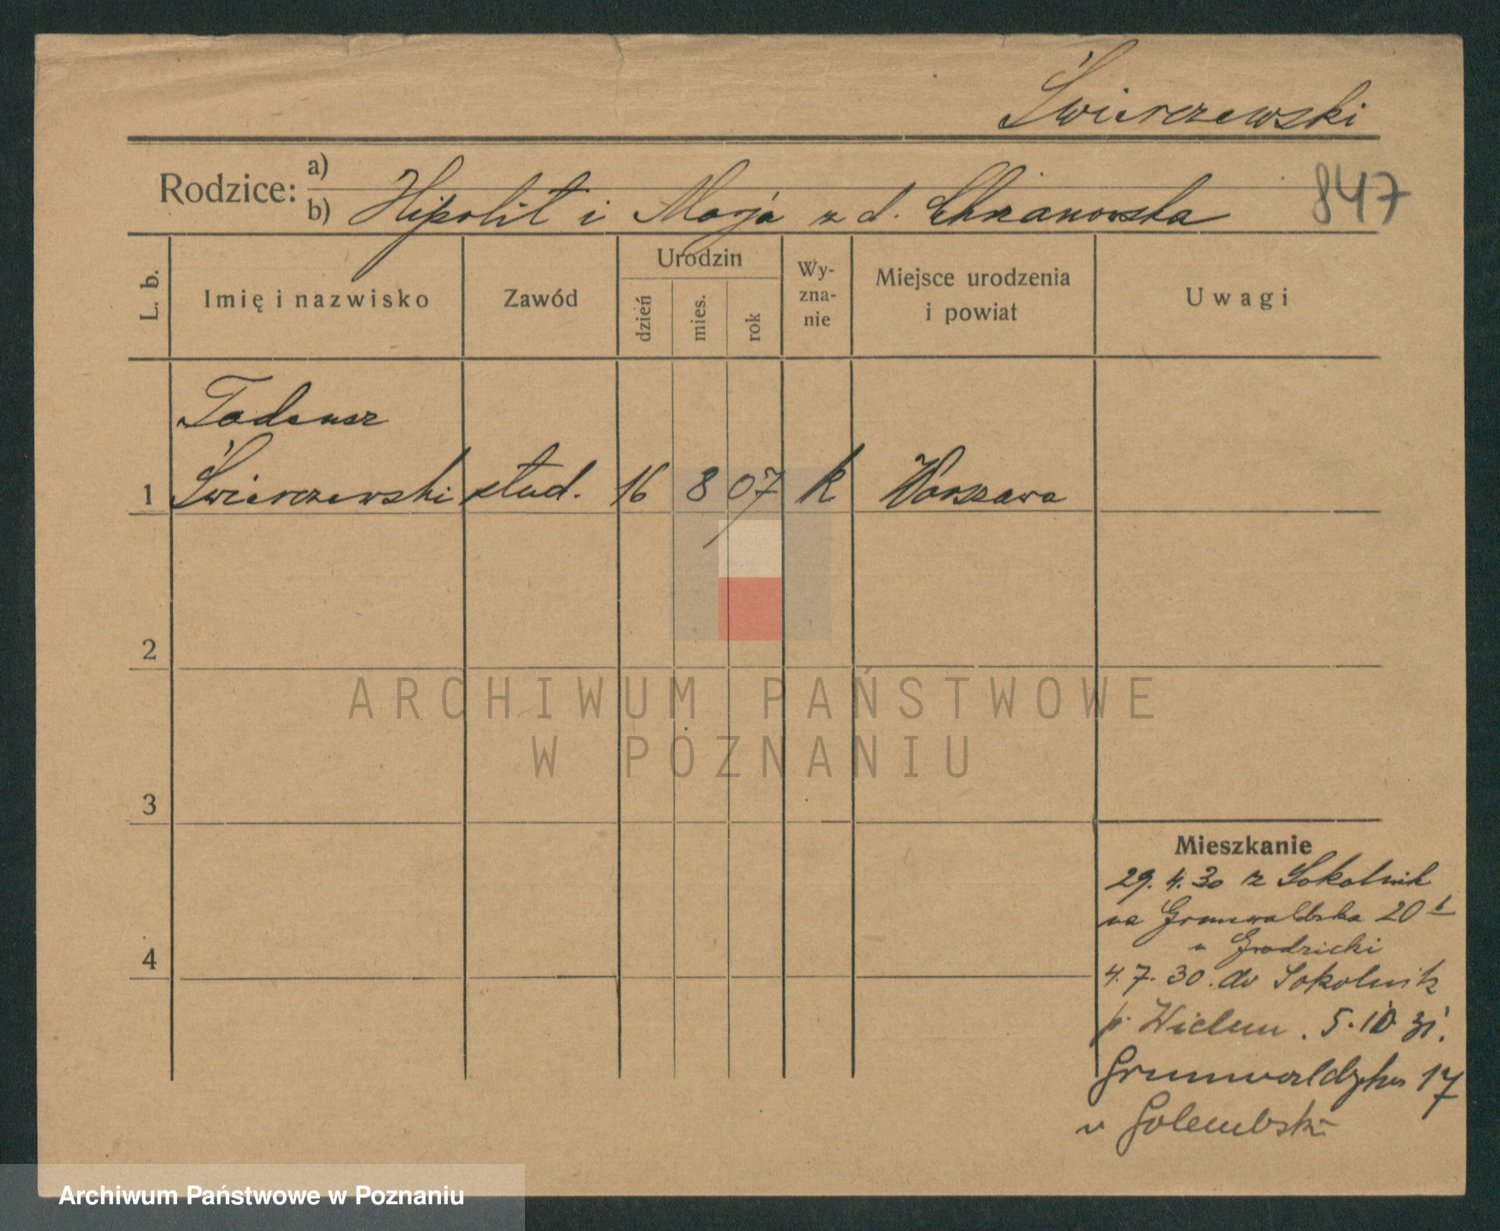 Świerczewski
Rodzice: a)
b) Hipolit i Marja z d. Chrzanowska
847
L. b.
Imię i nazwisko
Zawód
Urodzin
dzień
mies.
rok
Wy-
zna-
nie
Miejsce urodzenia
i powiat
Uwagi
Tadeusz
1 Świerczewski stud. 16 8 07 k Warszawa
2
ARCHIWUM PAŃSTWOWE
W POZNANIU
3
4
Mieszkanie
29.4.30 z Sokolnik
na Grunwaldzka 20
u Grodzicki
4.7.30. do Sokolnik
p. Wieluń. 5.10 31.
Grunwaldzka 17
u Golembski
Archiwum Państwowe w Poznaniu